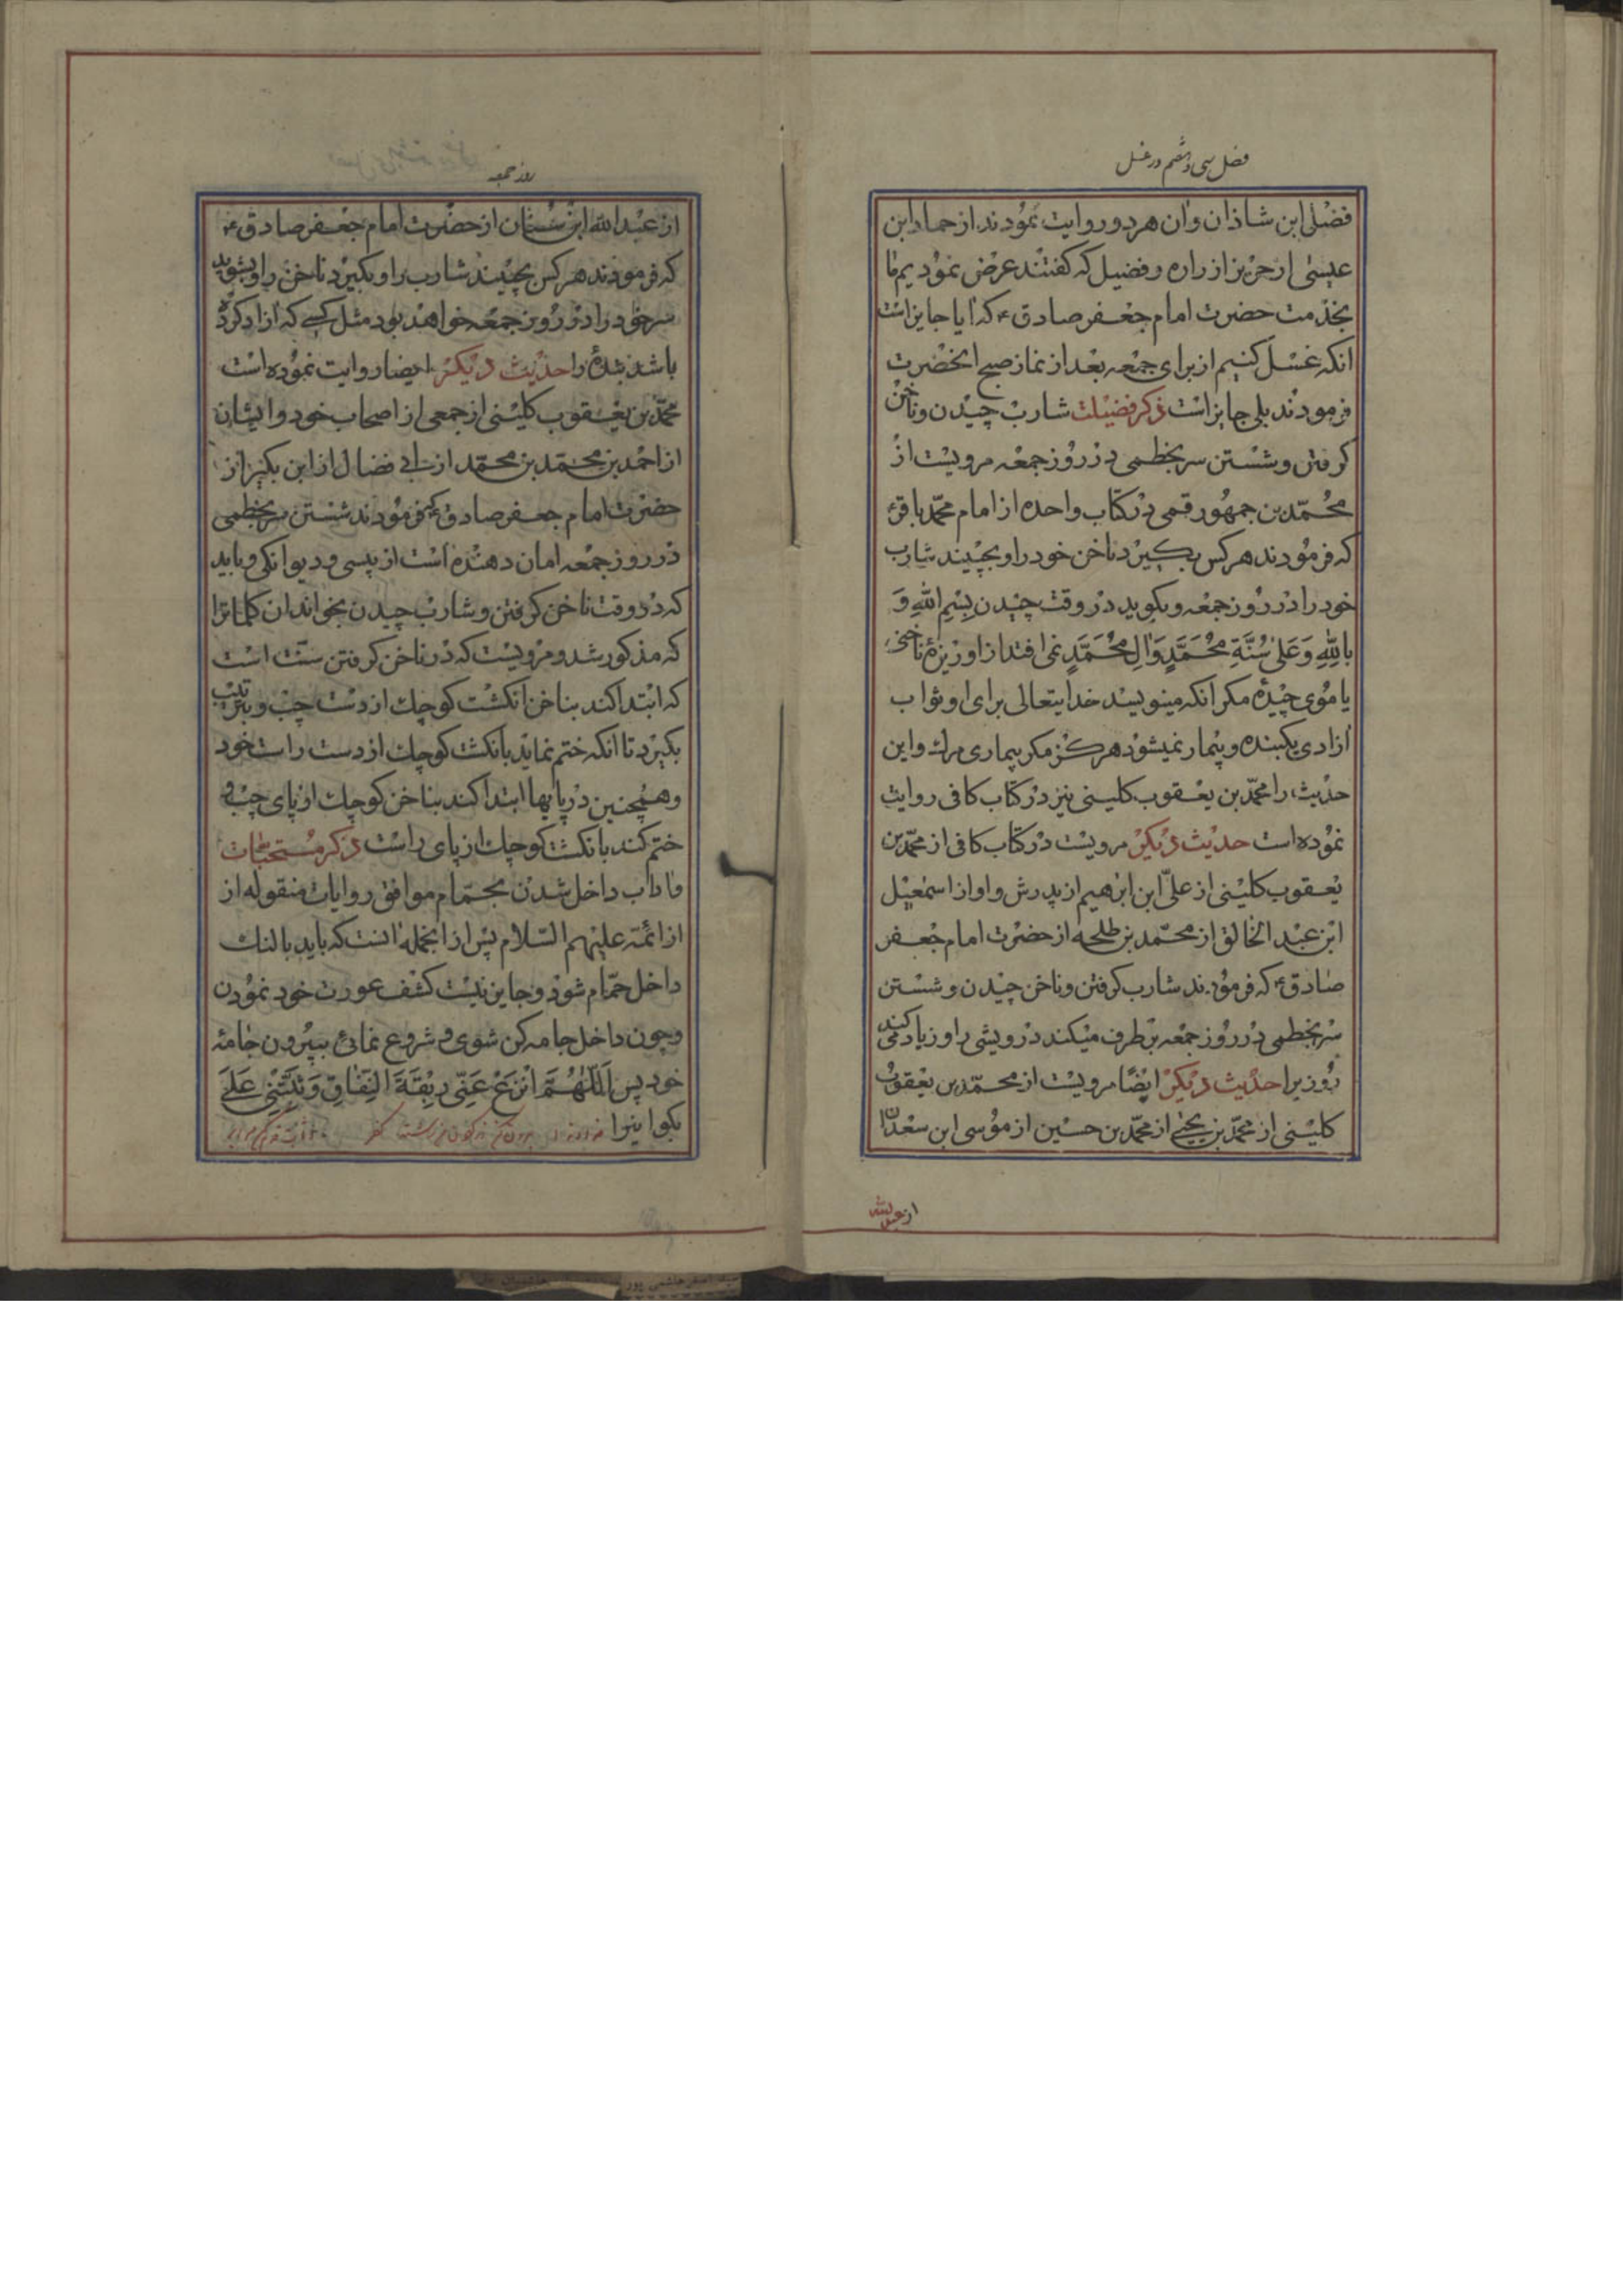 فصل سی و هشتم در غسل
فضل ابن شاذان و ان هر دو روایت نمودند از حماد ابن
عیسی از حریز از زراره و فضیل که گفتند عرض نمودیم ما
بخدمت حضرت امام جعفر صادق ع که ایا جایز است
انکه غسل کنیم از برای جمعه بعد از نماز صبح انحضرت
فرمودند بلی جایز است ذکر فضیلت شارب چیدن و ناخن
کرفتن و شستن سر بخطمی در روز جمعه مرویست از
محمّد بن جمهور قمی در کتاب واحده از امام محمّد باقر ع
که فرمودند هر کس بکیرد ناخن خود را و بچیند شارب
خود را در روز جمعه و بکوید در وقت چیدن بِسْمِ اللهِ وَ
بِاللهِ وَعَلیٰ سُنَّةِ مُحَمَّدٍ وَالِ مُحَمَّدٍ نمی افتد از او ریزهٔ ناخنی
یا موی چیدهٔ مکر انکه مینویسد خدایتعالی برای او ثواب
ازادی یکبنده و بیمار نمیشود هرکز مکر بیماری مرک و این
حدیث را محمّد بن یعقوب کلینی نیز در کتاب کافی روایت
نموده است حدیث دیکر مرویست در کتاب کافی از محمّد بن
یعقوب کلینی از علیّ ابن ابرهیم از پدرش و او از اسمعیل
ابن عبد الخالق از محمّد بن طلحه از حضرت امام جعفر
صادق ع که فرمودند شارب کرفتن و ناخن چیدن و شستن
سر بخطمی در روز جمعه بر طرف میکند درویشی را و زیاد کند
روزیرا حدیث دیکر ایضًا مرویست از محمّد بن یعقوب
کلینی از محمّد بن یحیی از محمّد بن حسین از موسی ابن سعدان
از عبد الله
روز جمعه
از عبد الله ابن سنان از حضرت امام جعفر صادق ع
که فرمودند هر کس بچیند شارب را و بکیرد ناخن را و بشوید
سر خود را در روز جمعه خواهد بود مثل کسی که ازاد کرده
باشد بندهٔ را حدیث دیکر ایضا روایت نموده است
محمّد بن یعقوب کلینی از جمعی از اصحاب خود و ایشان
از احمد بن محمّد بن محمّد از ابی فضال از ابن بکیر از
حضرت امام جعفر صادق ع که فرمودند شستن سر بخطمی
در روز جمعه امان دهنده است از پیسی و دیوانکی و باید
که در وقت ناخن کرفتن و شارب چیدن بخواند ان کلماترا
که مذکور شد و مرویست که در ناخن کرفتن سنّت است
که ابتدا کند بناخن انکشت کوچک از دست چپ و بترتیب
بکیرد تا انکه ختم نماید بانکشت کوچک از دست راست خود
و همچنین در پایها ابتدا کند بناخن کوچک از پای چپ و
ختم کند بانکشت کوچک از پای راست ذکر مستحبّات
و اداب داخل شدن بحمّام موافق روایات منقوله از
از ائمّه علیهم السّلام پس از انجمله انست که باید با لنک
داخل حمّام شود و جایز نیست کشف عورت خود نمودن
و چون داخل جامه کن شوی و شروع نمائی ببیرون جامهٔ
خود پس اَللّٰهُمَّ انْزَعْ عَنّی رِبْقَةَ النِّفاقِ وَثَبِّتْنی عَلَی
بکو اینرا خداوندا